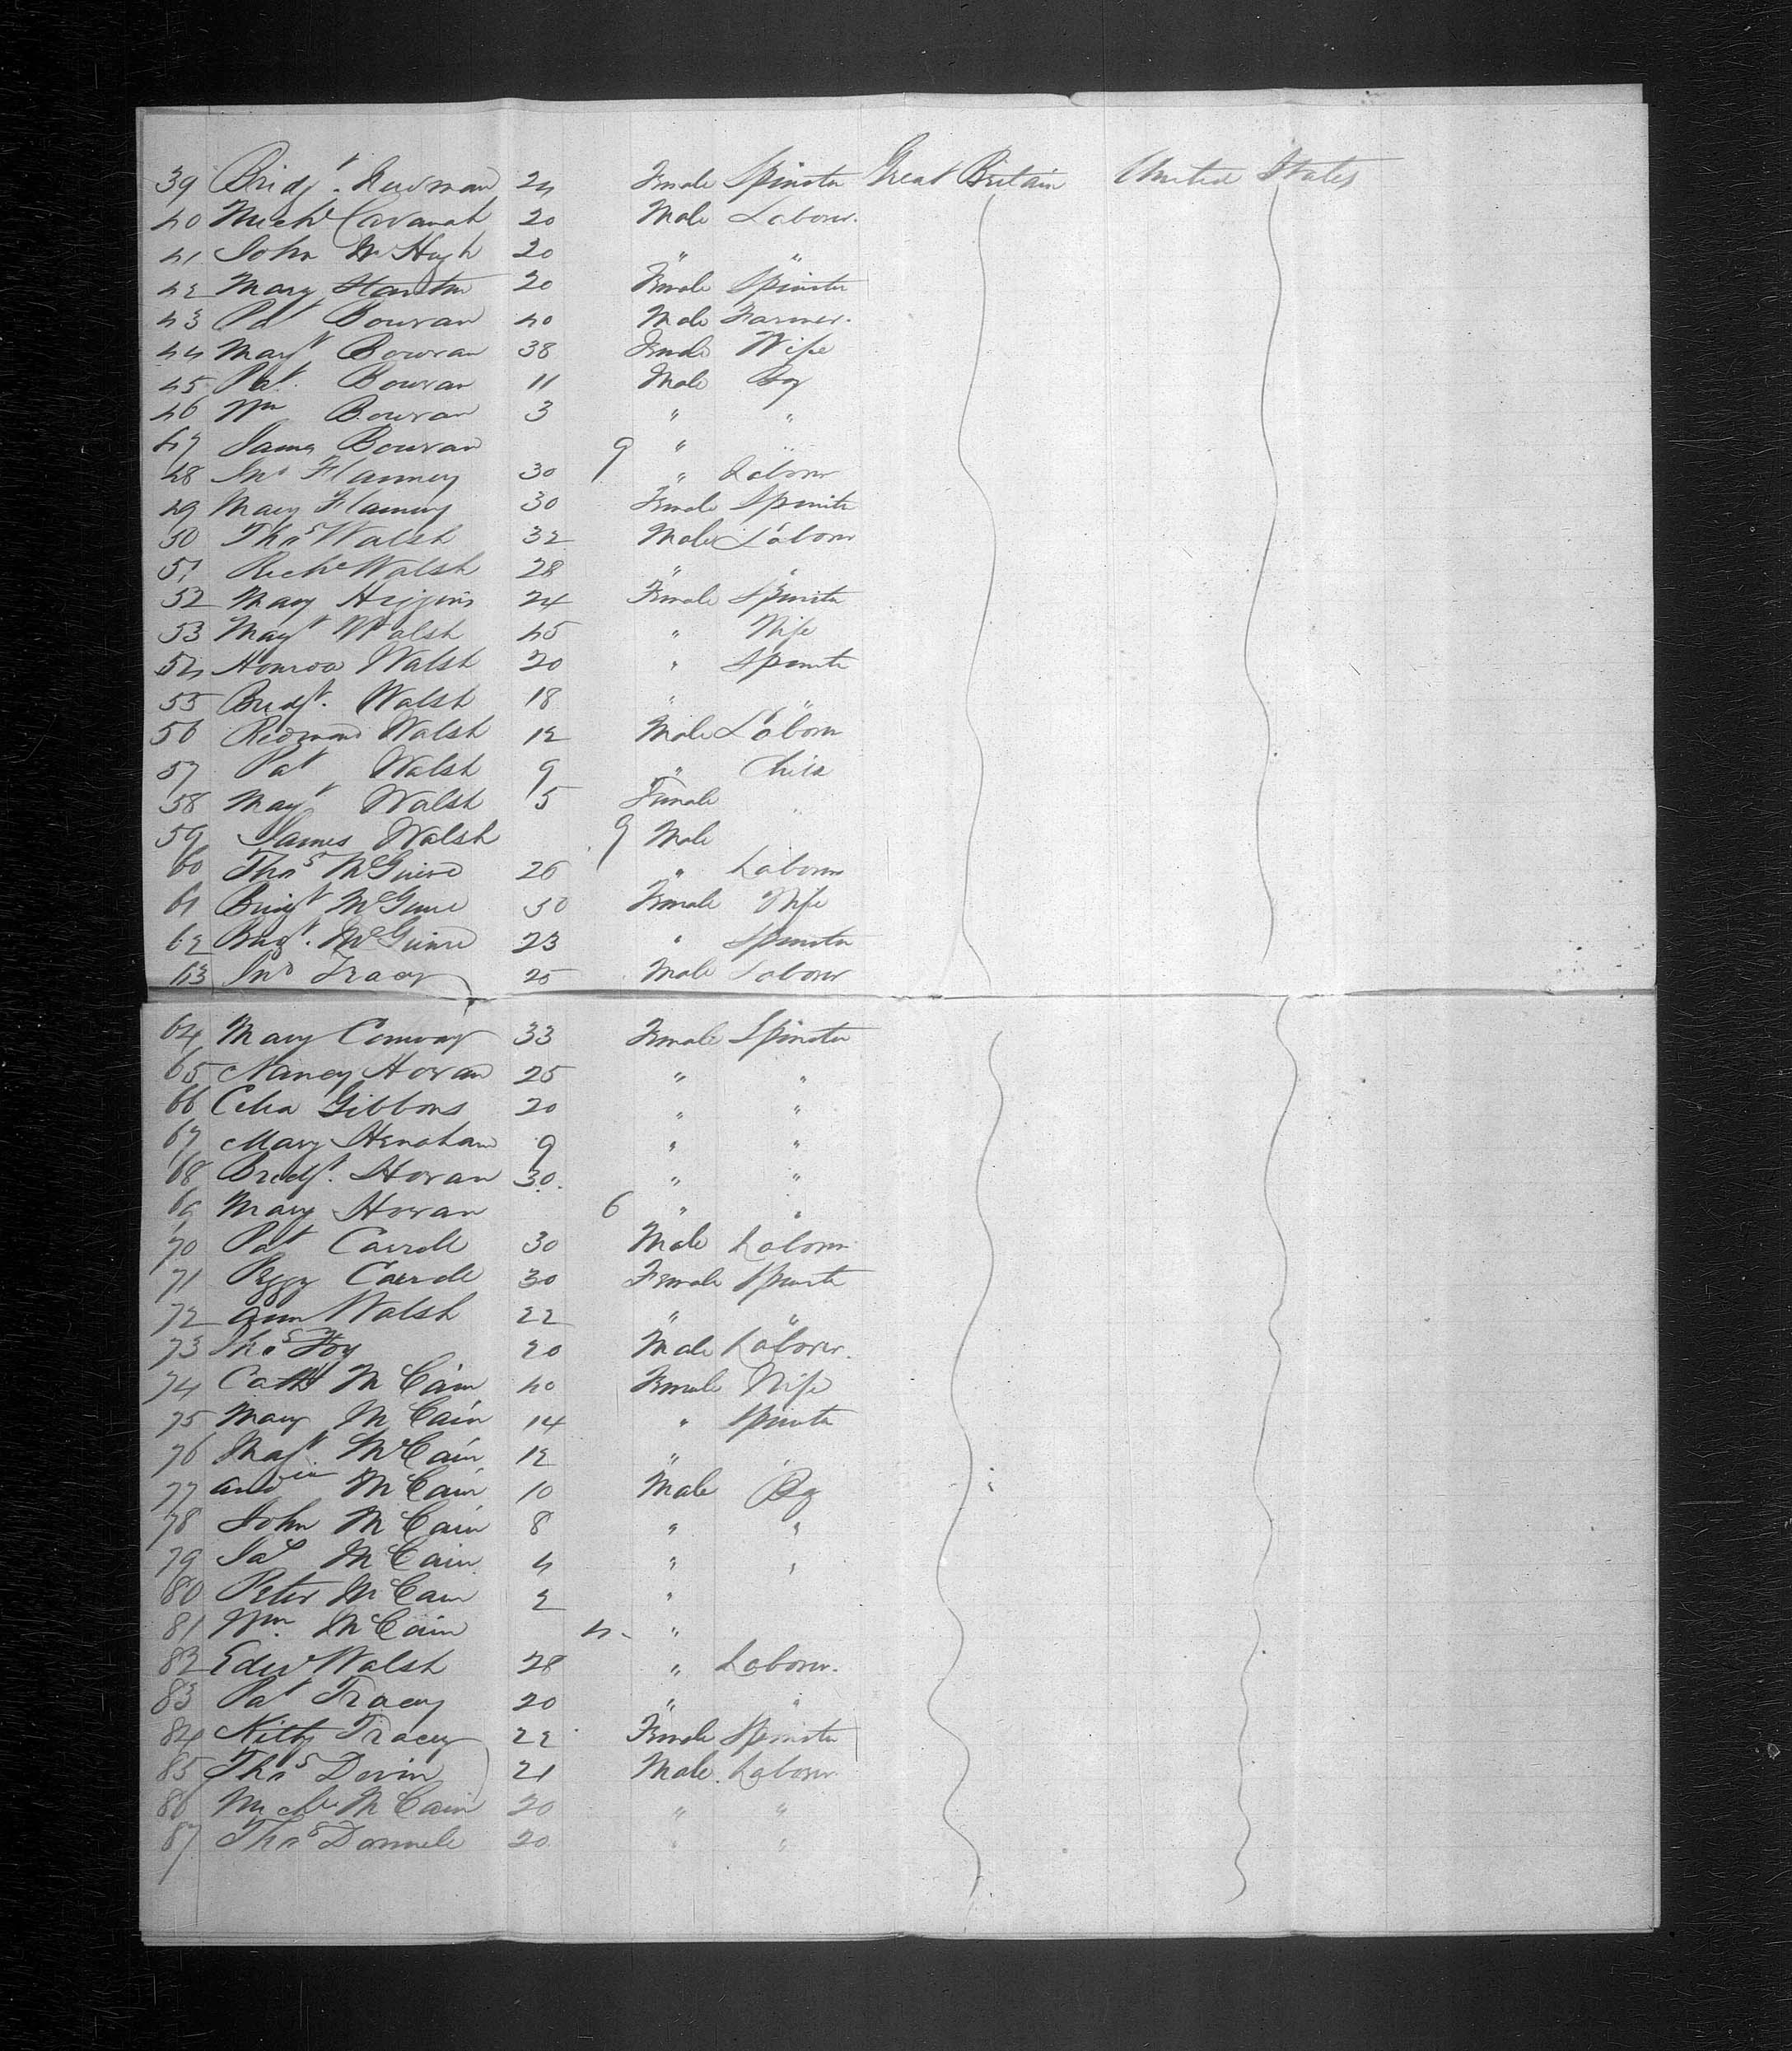 39 Bridgt. Redman 24 Female Spinster Great Britain United States
40 Michl Cavanah 20 Male Laborer.
41 John McHugh 20 " "
42 Mary 20 Female Spinster
43 Pat Bowran 40 Male Farmer.
44 Margt Bowran 38 Female Wife
45 Pat. Bowran 11 Male Boy
46 Wm Bowran 3 " "
47 James Bowran 9 " "
48 Jno Flannery 30 " Laborer
49 Mary Flannery 30 Female Spinster
50 Thos Walsh 32 Male Laborer
51 Richd Walsh 28 " "
52 Mary Higgins 24 Female Spinster
53 Margt Walsh 45 " Wife
54 Honora Walsh 20 " Spinster
55 Bridgt. Walsh 18 " "
56 Redmond Walsh 12 Male Laborer
57 Pat Walsh 9 " Child
58 Margt Walsh 5 Female "
59 James Walsh 9 Male
60 Thos McGuire 26 " Laborer
61 Bridgt McGuire 30 Female Wife
62 Bridgt. McGuire 23 " Spinster
63 Jno Tracy 25 Male Laborer
64 Mary Conway 33 Female Spinster
65 Nancy Horan 25 " "
66 Celia Gibbons 20 " "
67 Mary Henahan 9 " "
68 Bridgt. Horan 30. " "
69 Mary Horan 6 " "
70 Pat Carroll 30 Male Laborer
71 Peggy Carroll 30 Female Spinster
72 Ann Walsh 22 " "
73 Thos Foy 20 Male Laborer.
74 Cath McCain 40 Female Wife
75 Mary McCain 14 " Spinster
76 Margt. McCain 12 " "
77 McCain 10 Male Boy
78 John McCain 8 " "
79 Jas McCain 4 " "
80 Peter McCain 2 "
81 Wm. McCain 4 "
82 Edwd Walsh 28 " Laborer.
83 Pat Tracey 20 " "
84 Kitty Tracey 22 Female Spinster
85 Thos Devin 21 Male. Laborer
86 Michl McCain 20 " "
87 Thos Donnell 20 " "